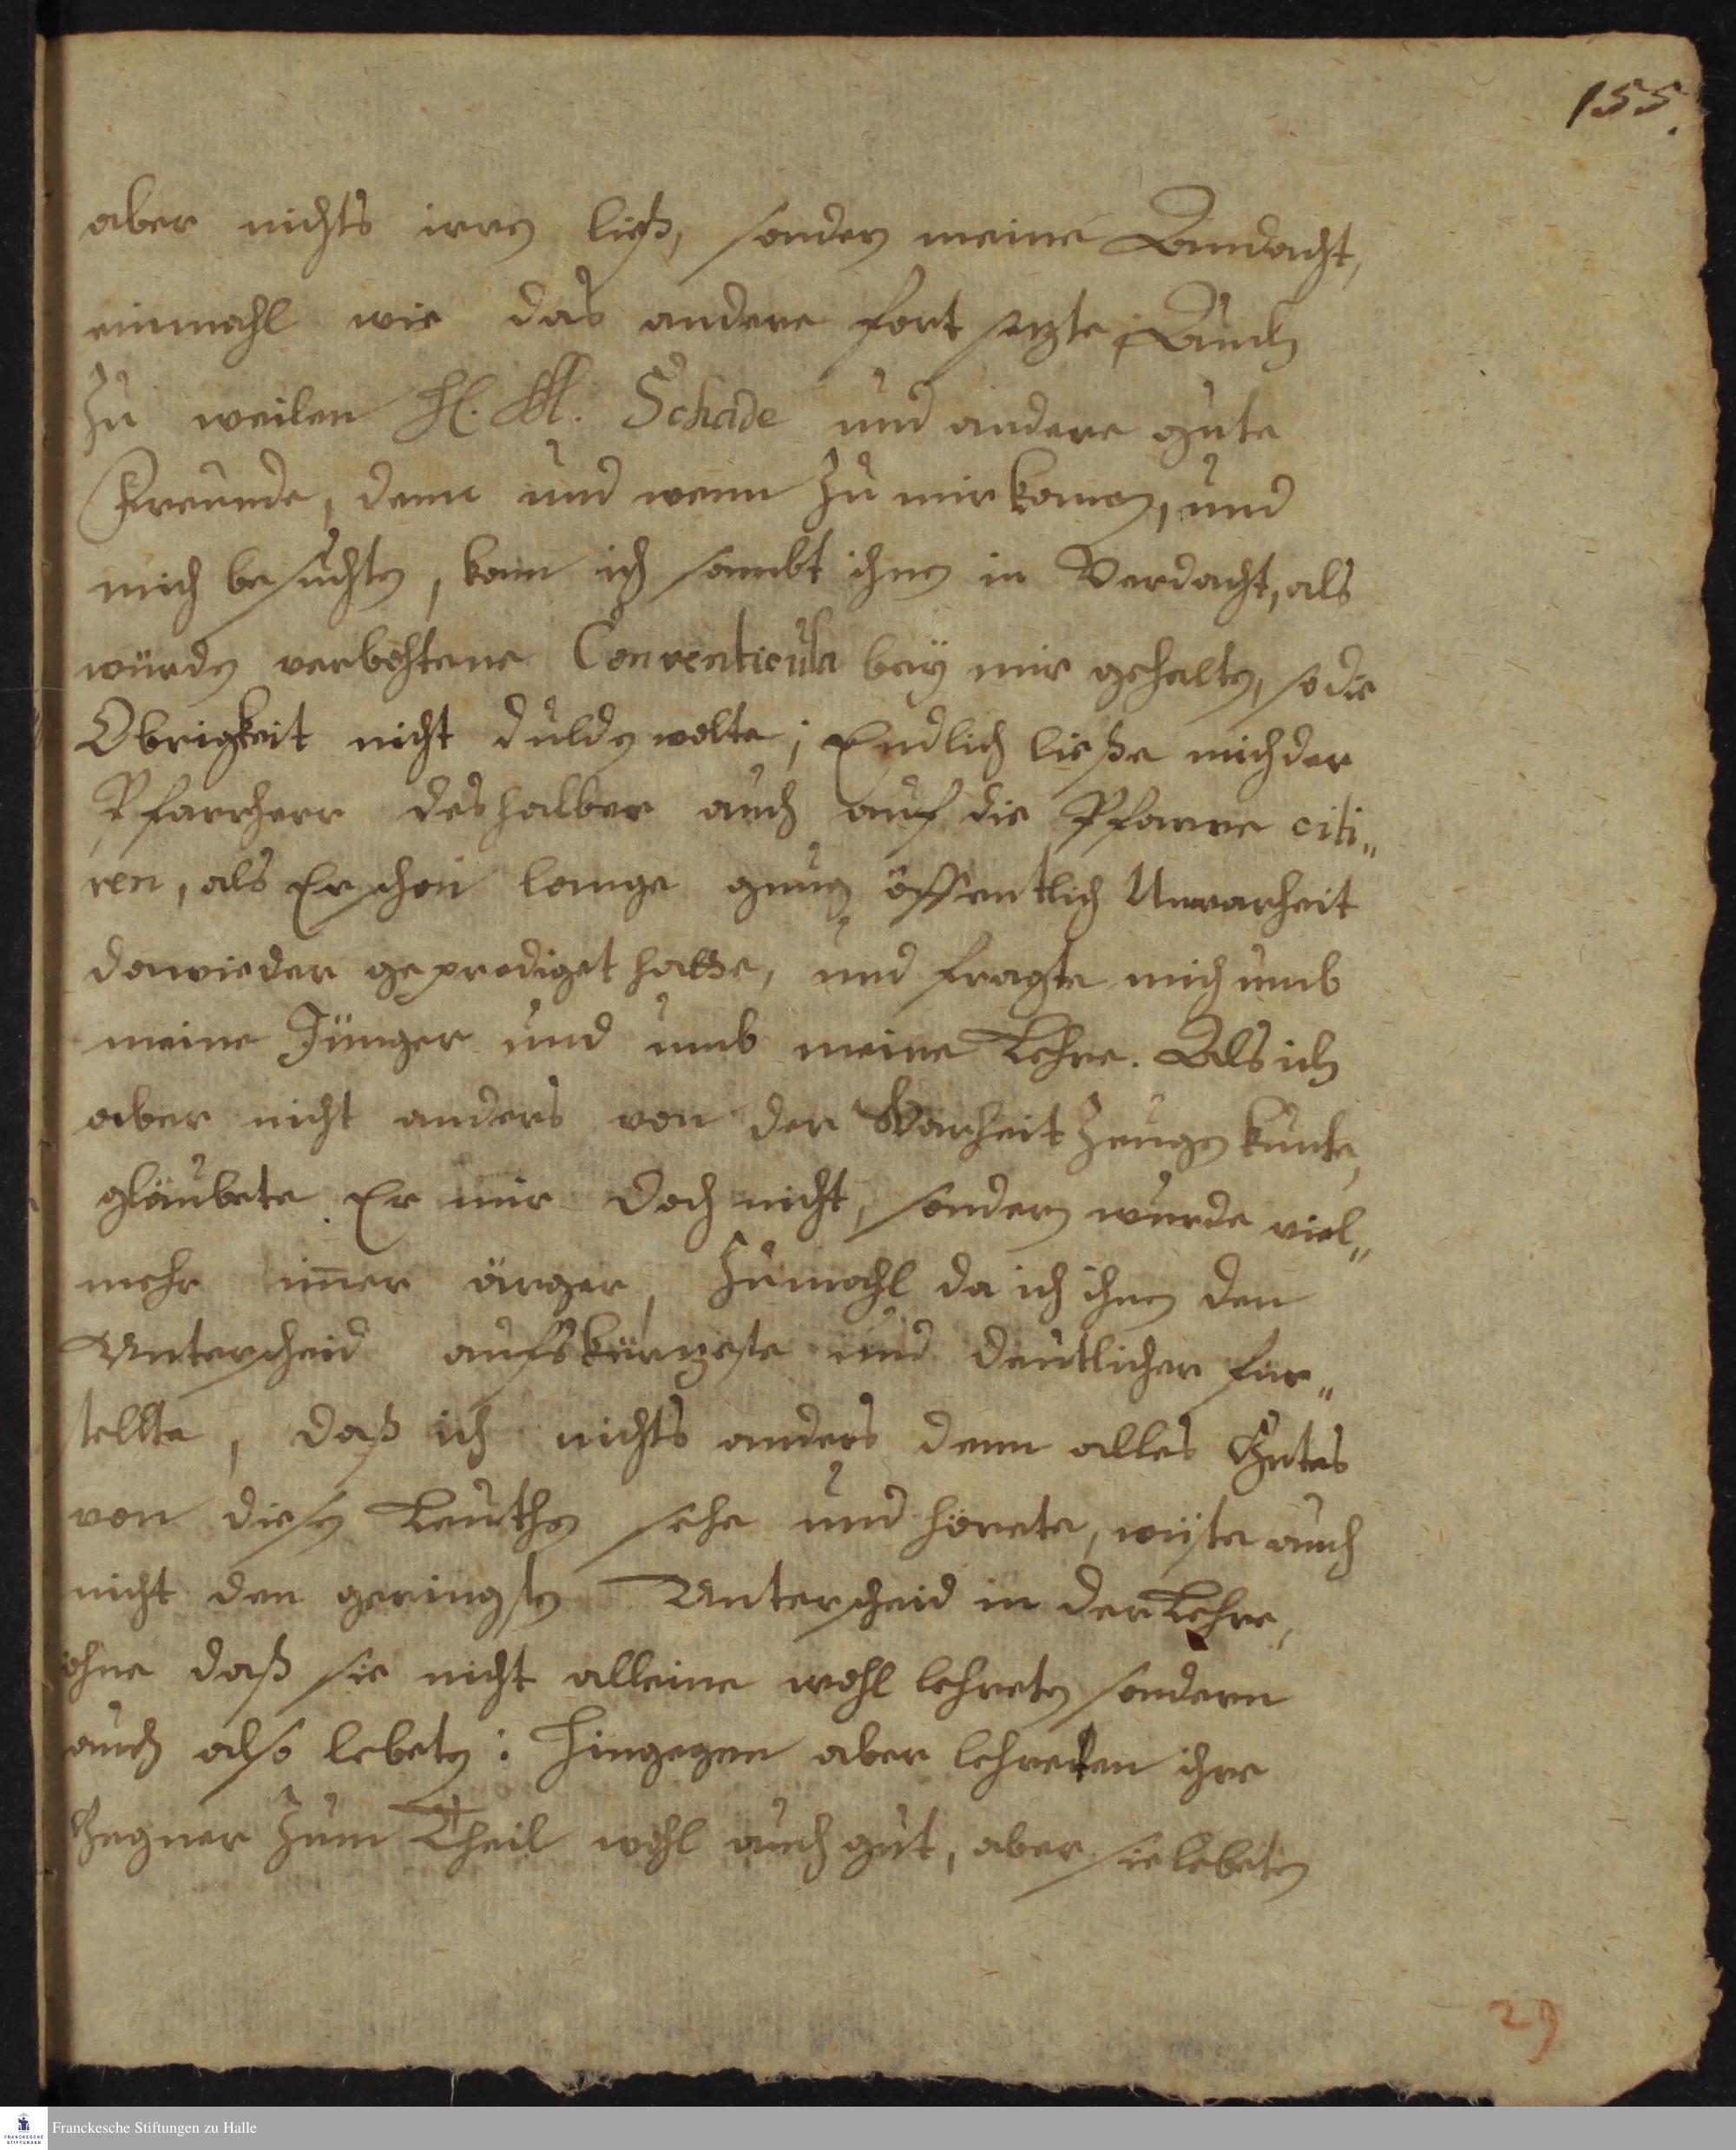 155.
aber nichts irren ließ, sondern meine Andacht,
einmahl wie das andere fort setzte, Auch
Zu weilen H. M. Schade und andere gute
Freunde, denn und wenn Zu mir komen, und
mich besuchten, kam ich sambt ihnen in Verdacht, als
würden verbohtene Conventicula beÿ mir gehalten, so die
Obrigkeit nicht dulden wolte; Endlich ließe mich der
Pfarrherr deshalber auch auf die Pfarre citi„
ren, als Er schon lange gnug öffentlich Unwarheit
dawieder geprediget hatte, und fragte mich umb
meine Jünger und umb meine Lehre. Als ich
aber nicht anders von der Warheit Zeugen kunte,
gläubete Er mir doch nicht, sondern wurde viel„
mehr im̄er ärger, Zumahl da ich ihnen den
Unterscheid aufs kürtzeste und deutlicher für„
stellte, daß ich nichts anders denn alles Gutes
von diesen Leuthen sehe und hörete, wüste auch
nicht den geringsten Unterscheid in der Lehre,
ohne daß sie nicht alleine wohl lehreten sondern
auch also lebeten: Hingegen aber lehreten ihre
Gegner Zum Theil wohl auch gut, aber sie lebeten
29
Franckesche Stiftungen zu Halle
FRANCKESCHE
STIFTUNGEN